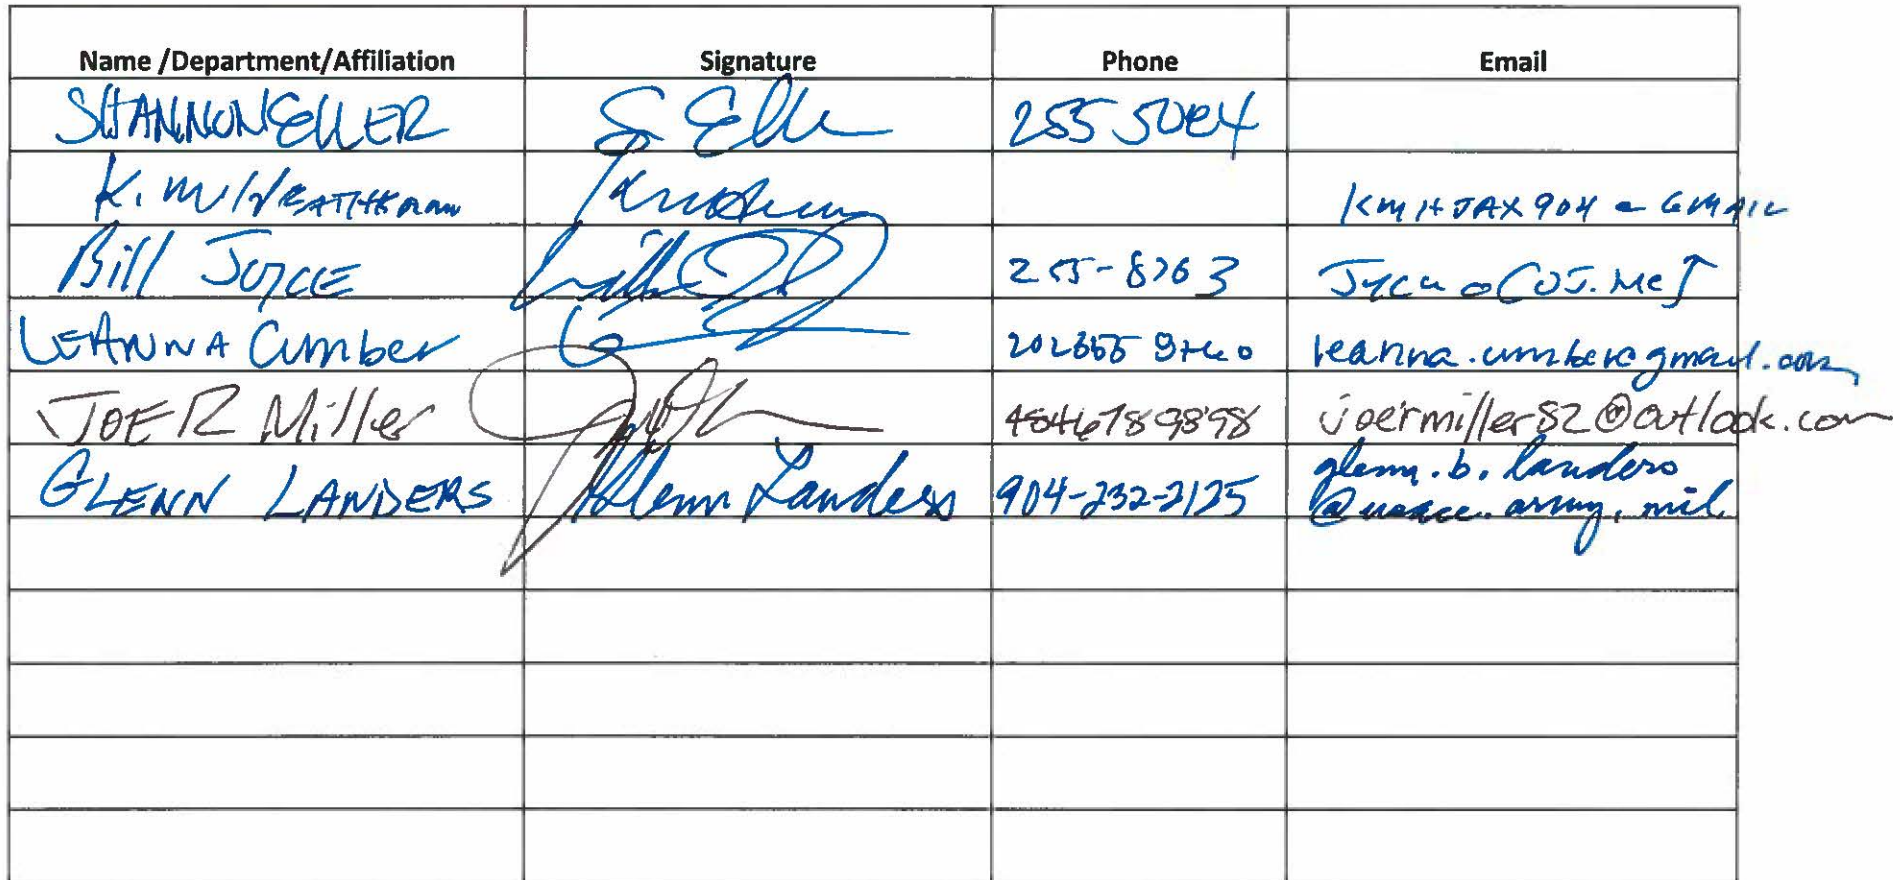 Name /Department/Affiliation Signature Phone Email
SHANNON ELLER S Elle 255 5064
K. M
Bill JOYCE 255-8763
LEANNA Cumber 202 leanna.cumber@gmail.com
JOE R Miller 4846789898 joermiller82@outlook.com
GLENN LANDERS Glenn Landers 904-232-2125 glenn.b.landers
@usace.army.mil